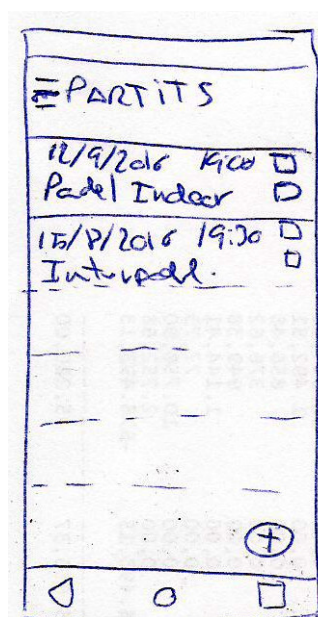 PARTiTS
12/9/2016 19:00
Padel Indoor
15/9/2016 19:30
Interpadel.